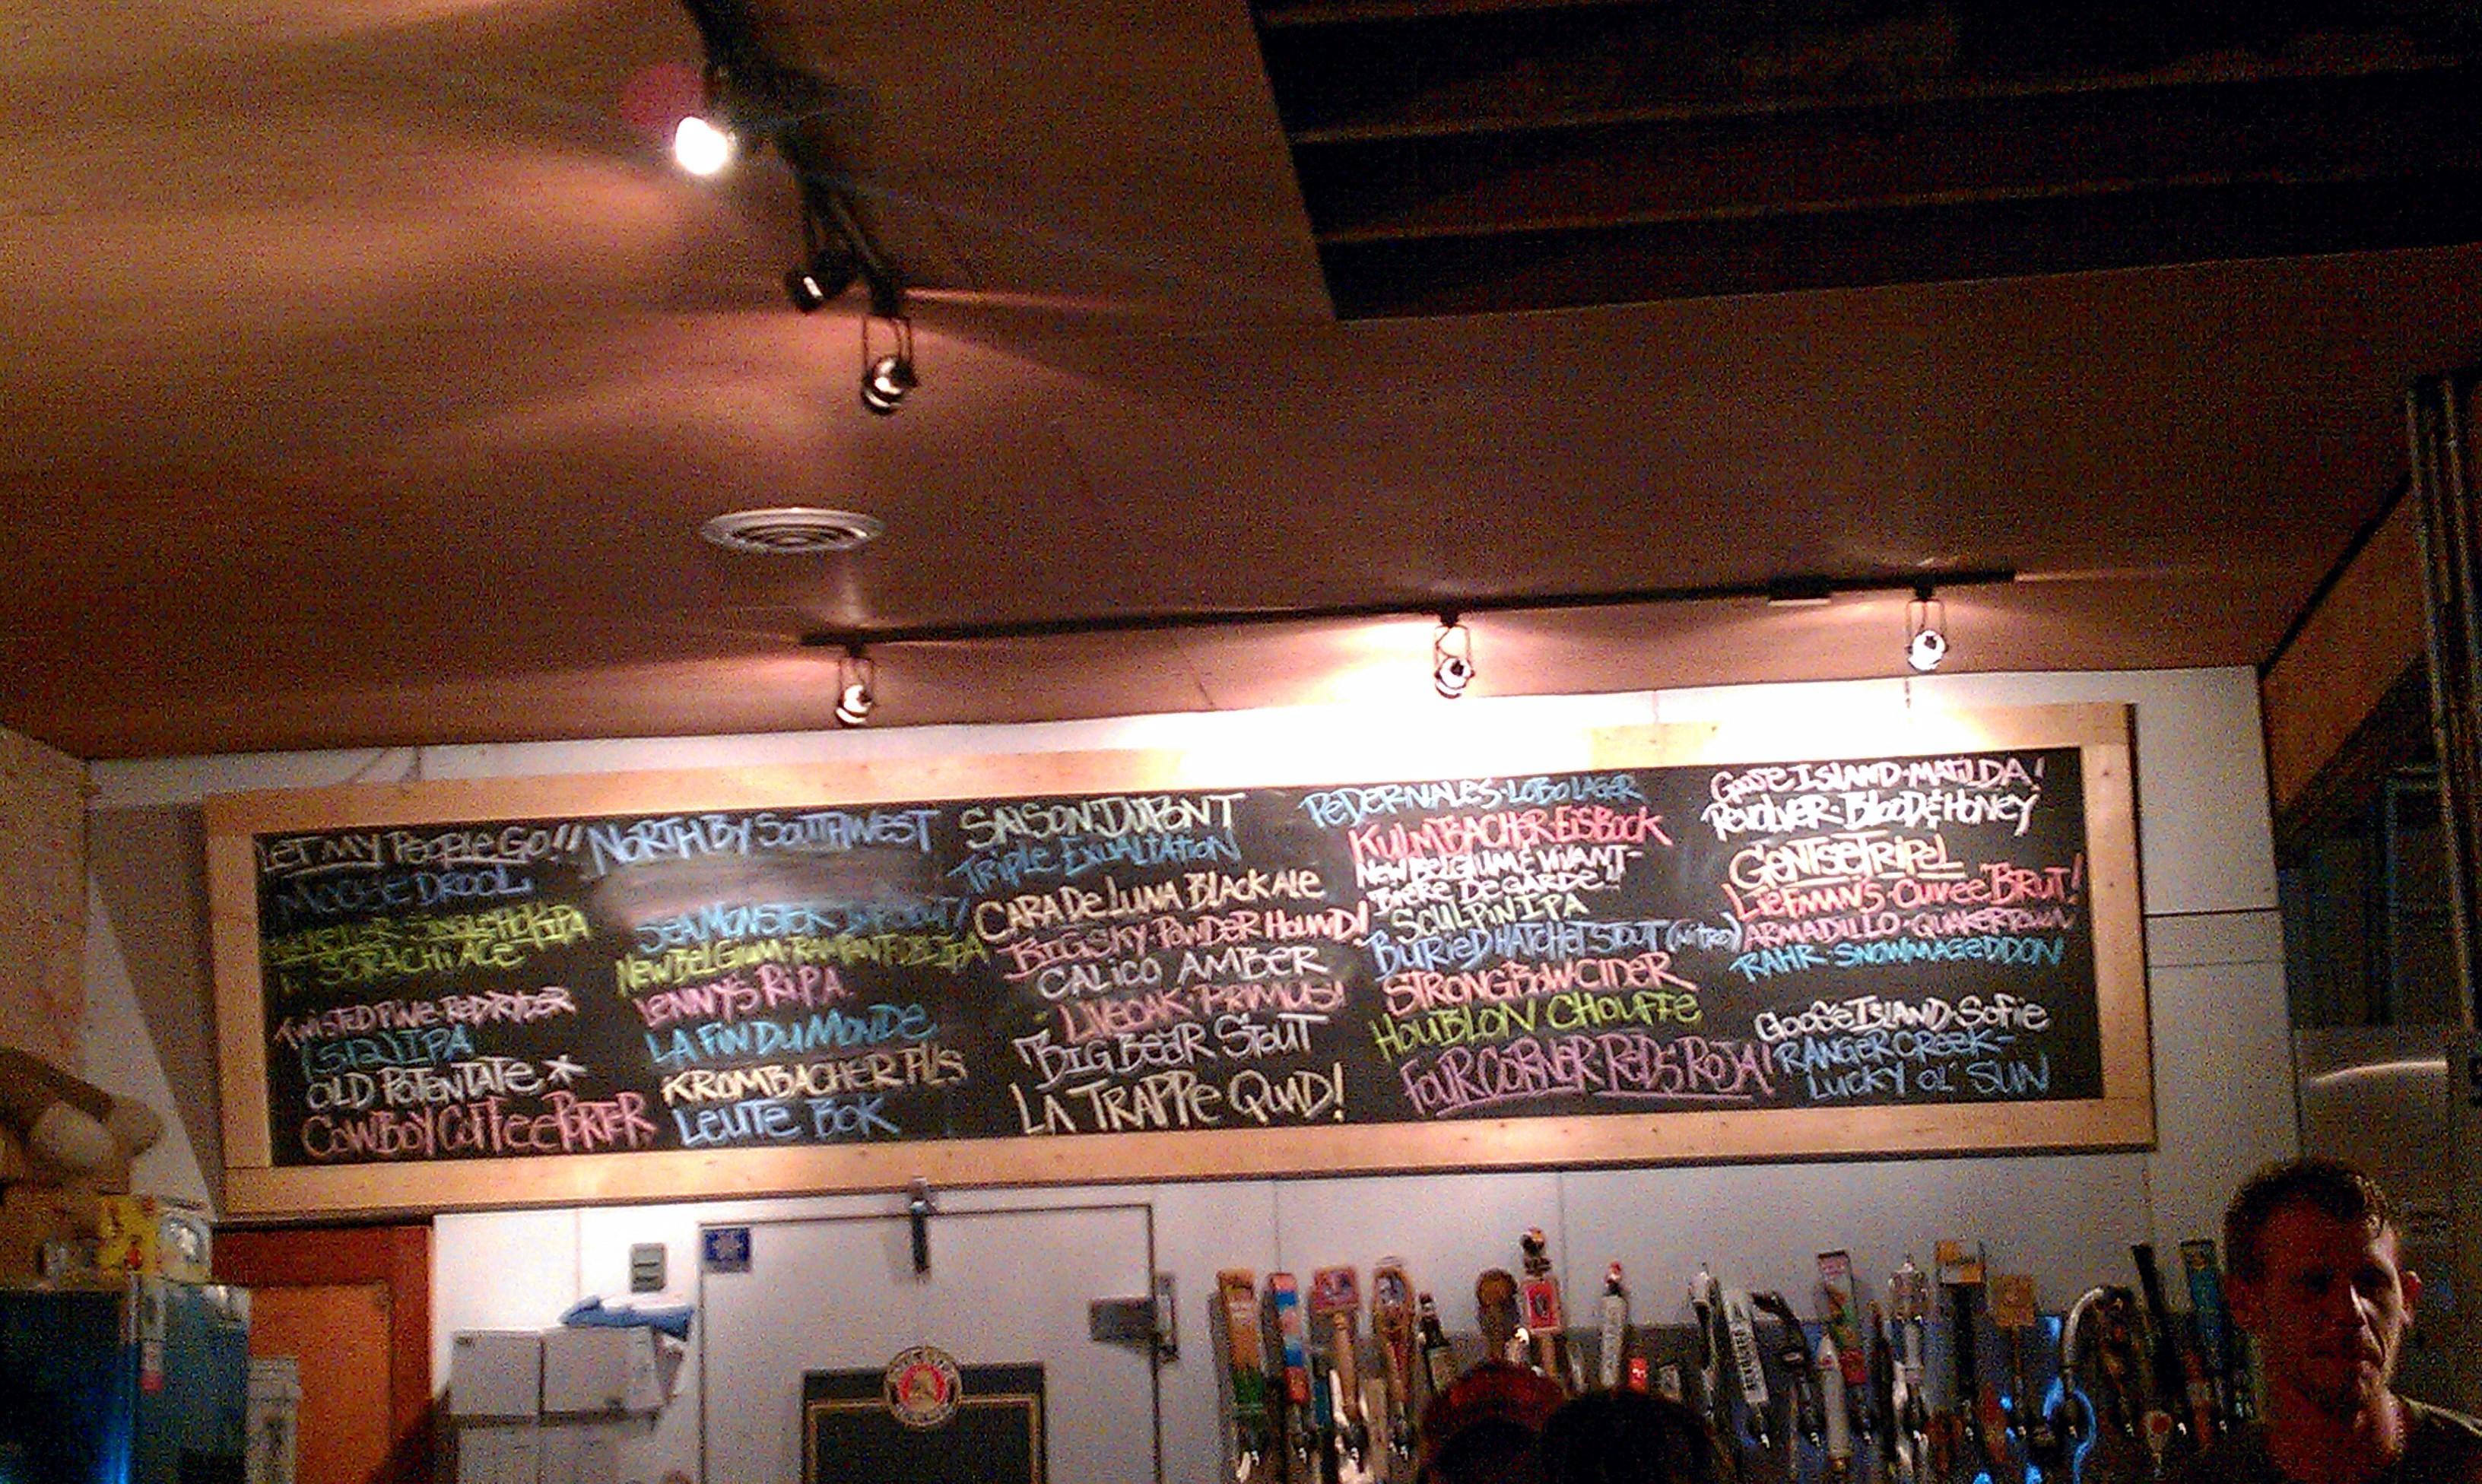 LET MY PEOPLE GO!!
MOOSE DROOL
SINGLE HOP IPA
SORACHI ACE
TWISTED PINE RED RYDER
(512) IPA
OLD POTENTATE *
COWBOY COFFEE PORTER
NORTH BY SOUTHWEST
SEA MONSTER STOUT!
NEW BELGIUM-RAMPANT
LENNY'S RIPA
LA FIN DU MONDE
KROMBACHER PILS
LEUTE BOK
SAISON DUPONT
TRIPLE EXUALTATION
CARA DE LUNA BLACK ALE
BIG SKY-POWDER HOUND!
CALICO AMBER
LIVEOAK-PRIMUS!
BIG BEAR STOUT
LA TRAPPE QUAD!
PEDERNALES-LOBO LAGER
KULMBACHER EISBOCK
NEW BELGIUM É VIVANT-
BIERE DE GARDE!!
SCULPIN IPA
BURIED HATCHET STOUT (NITRO)
STRONGBOW CIDER
HOUBLON CHOUFFE
FOUR CORNER REDS ROJA!
GOOSE ISLAND-MATILDA!
REVOLVER-BLOOD & HONEY
GENTSE TRIPEL
LIEFMAN'S-CUVEE BRUT!
ARMADILLO-QUAKERTOWN
RAHR-SNOWMAGEDDON
GOOSE ISLAND-SOFIE
RANGER CREEK-
LUCKY OL' SUN